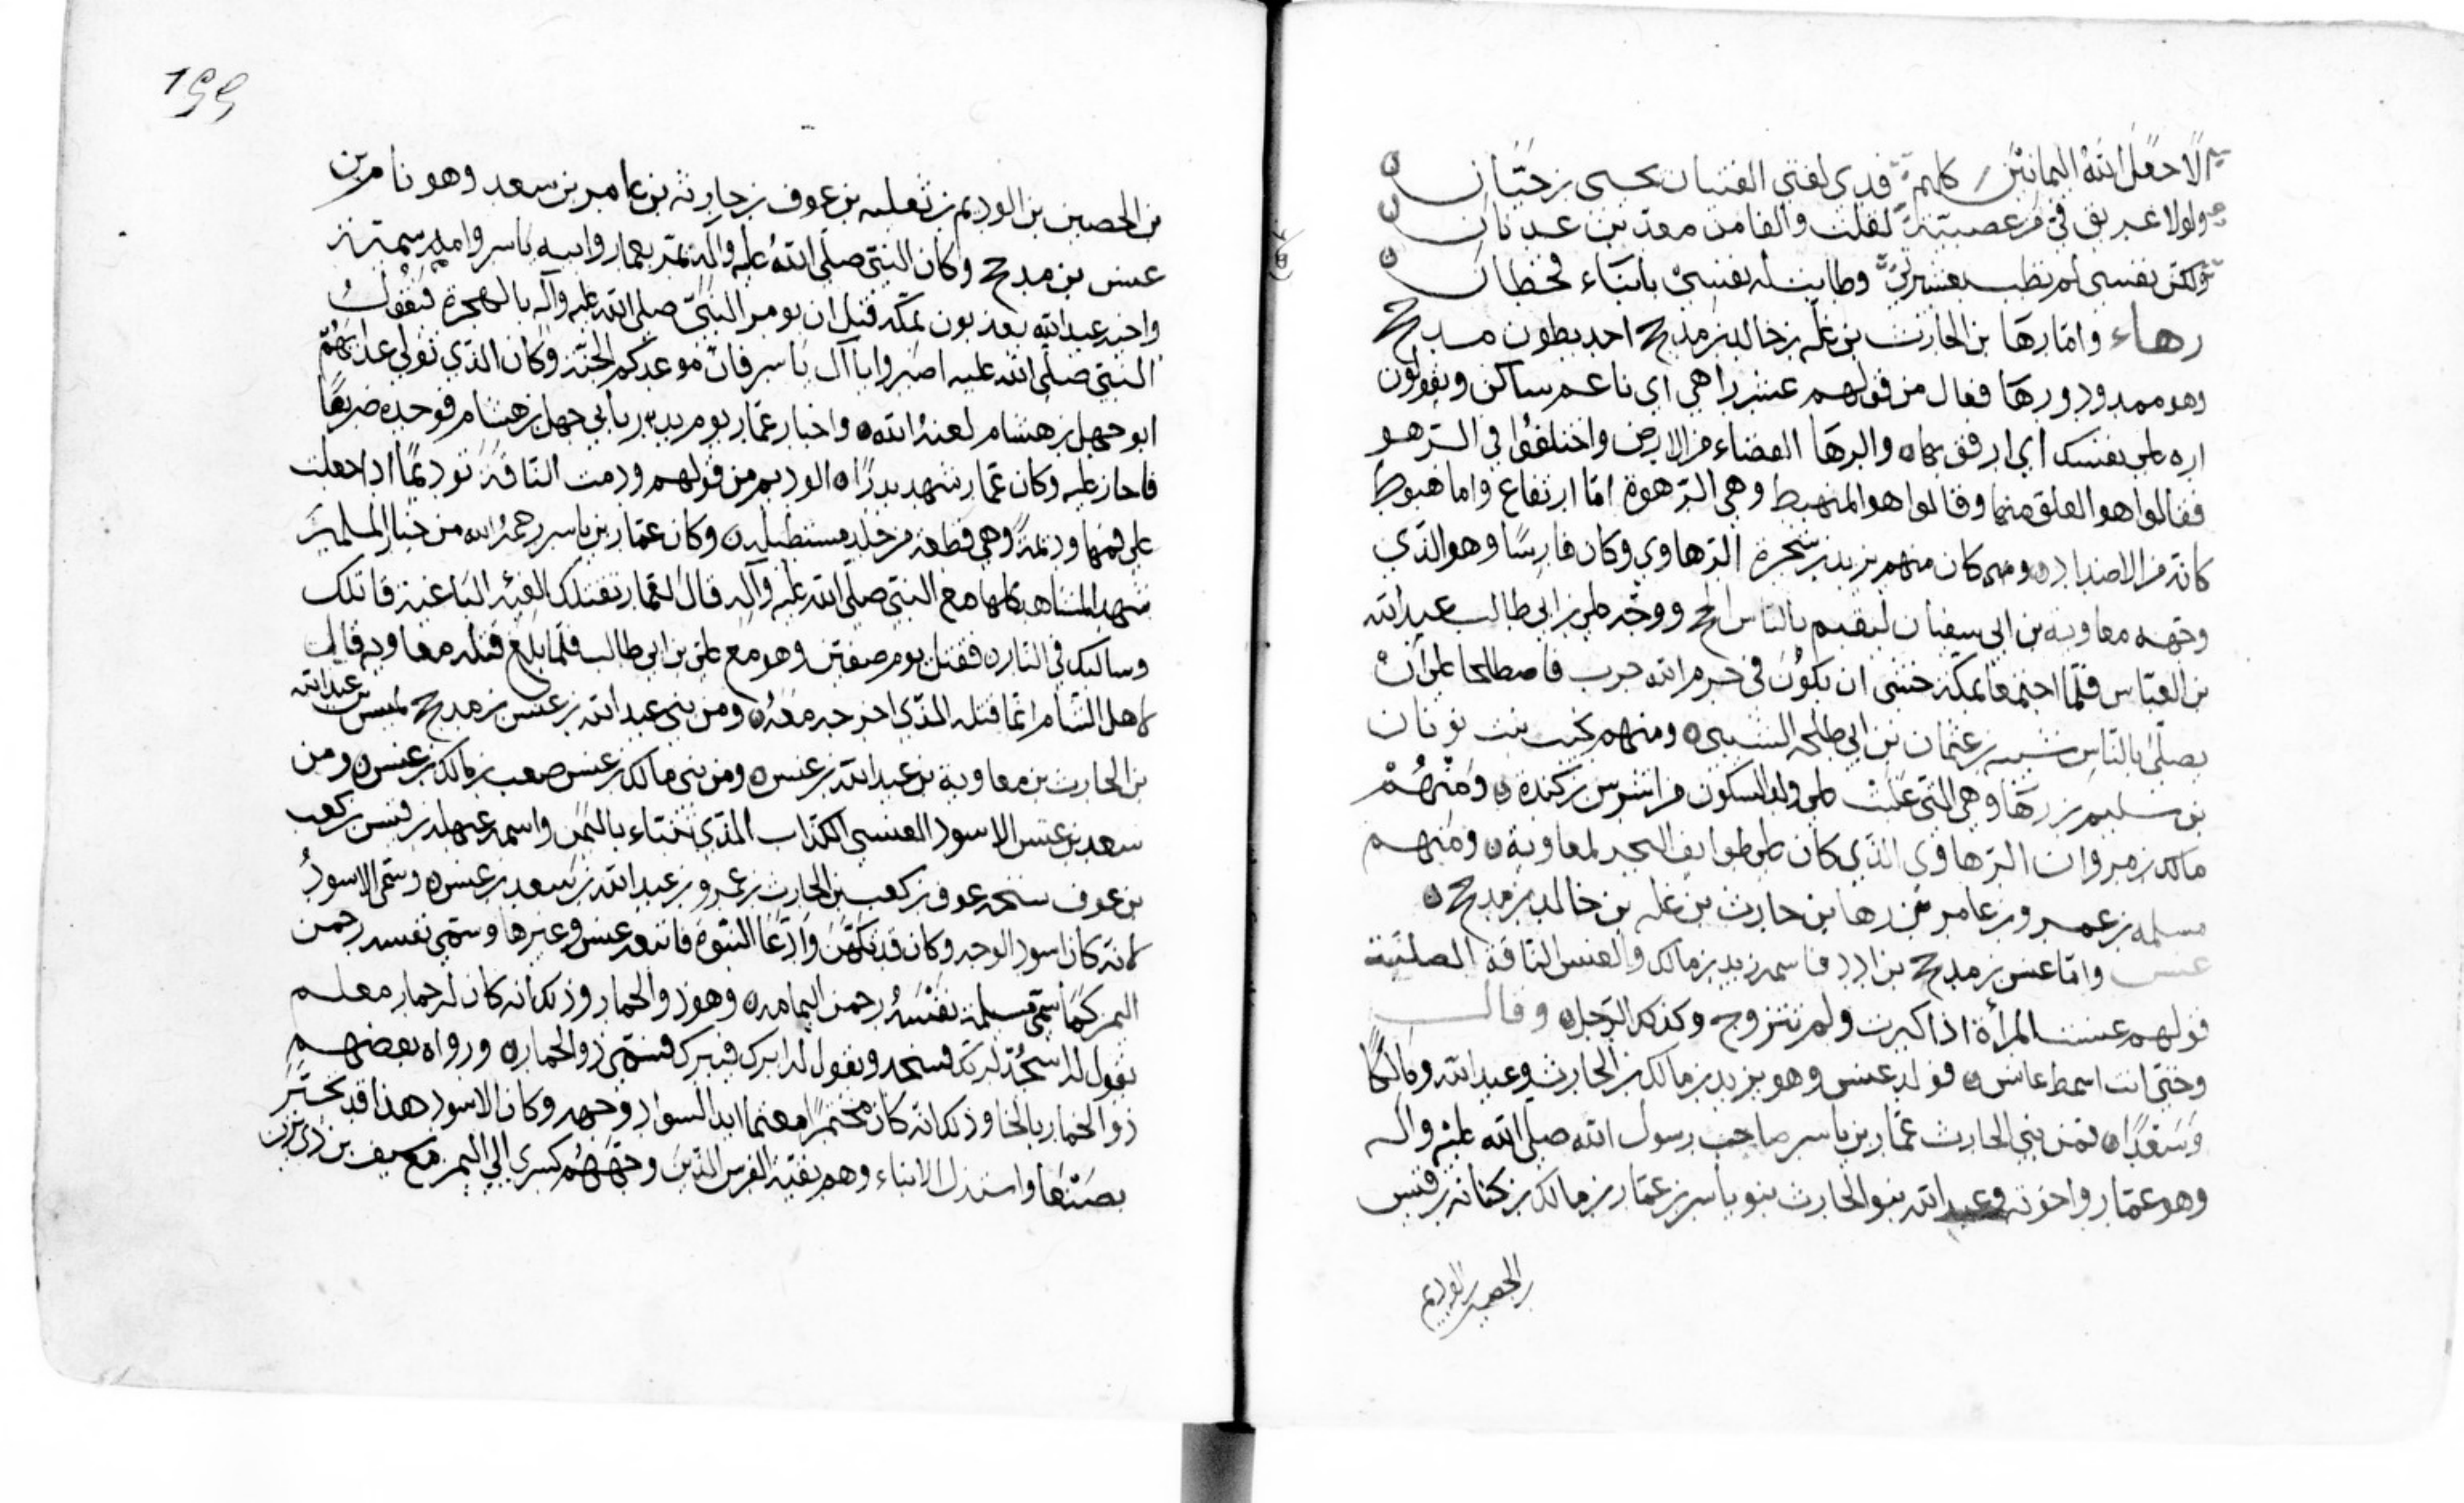 لا جعل الله اليمانين كلهم فدى لفتى الفتيان يحيى بن حيان
ولولا عريق في من عصبية لقلت والفا من معد بن عدنان
ولكن نفسي لم تطب بعشيرتي وطابت له نفسي بابناء قحطان
رهاء واما رها بن الحارث بن عله بن خالد بن مذحج احد بطون مذحج
وهو ممدود ورها فعال من قولهم عيش راهي اي ناعم ساكن ويقولون
اره على نفسك اي ارفق بها والرها الفضاء من الارض واختلفوا في الرهو
فقالوا هو العلو منها وقالوا هو المنهبط وهي الرهوة اما ارتفاع واما هبوط
كانه من الاضداد كان منهم يزيد بن شجرة الرهاوي وكان فارسا وهو الذي
وجهه معاوية بن ابي سفيان ليقيم بالناس الحج ووجه علي بن ابي طالب عبد الله
بن العباس فلما اجتمعا بمكة خشى ان يكون في حرم الله حرب فاصطلحا على ان
يصلي بالناس شيبه بن عثمان بن ابي طلحه الشيبي ومنهم نجيب بنت ثوبان
بن سليم بن رها وهي التي غلبت على ولد السكون من اشرس بن كندة ومنهم
مالك بن مروان الرهاوي الذي كان على طوايف البحر لمعاوية ومنهم
مسلمه بن عمرو بن عامر بن رها بن حارث بن عله بن خالد بن مذحج
عنس واما عنس بن مذحج بن ادد فاسمه زيد بن مالك والعنس الناقة الصلبة
قولهم عنست المرأة اذا كبرت ولم تتزوج وكذلك الرجل وقال
وحتى انت اسمط عانس فولد عنس وهو يزيد بن مالك بن الحارث وعبد الله ومالكا
وسعدا فمن بني الحارث عمار بن ياسر صاحب رسول الله صلى الله عليه واله
وهو عمار واخوته وعبد الله بنو الحارث بنو ياسر بن عمار بن مالك بن كنانة بن قيس
بن الحصين بن الوديم
199
بن الحصين بن الوديم بن ثعلبه بن عوف بن حارثه بن عامر بن سعد وهو نام بن
عنس بن مذحج وكان النبي صلى الله عليه وآله يمر بعمار وابيه ياسر وامه سمية
واخيه عبد الله يعذبون بمكة قبل ان يومر النبي صلى الله عليه وآله بالهجرة فيقول
النبي صلى الله عليه اصبروا يا آل ياسر فان موعدكم الجنة وكان الذي تولى عذابهم
ابو جهل بن هشام لعنه الله واخبار عمار يوم بدر بابي جهل بن هشام فوجده صريعا
فاحاز عليه وكان عمار شهد بدرا الوديم من قولهم ودمت الناقة توديما اذا جعلت
على فمها وديمة وهي قطعة من جلد مستطيلة وكان عمار بن ياسر رحمه الله من خيار المسلمين
شهد المشاهد كلها مع النبي صلى الله عليه وآله قال لعمار تقتلك الفئة الباغية قاتلك
وسالبك في النار فقتل يوم صفين وهو مع علي بن ابي طالب فلما بلغ قتله معاوية قال
لاهل الشام انما قتله الذي اخرجه معه ومن بني عبد الله بن عنس بن مذحج عبد الله
بن الحارث بن معاوية بن عبد الله بن عنس ومن بني مالك بن عنس صعب بن مالك بن عنس ومن
سعد بن عنس الاسود العنسي الكذاب الذي تنباء باليمن واسمه عيهلة بن قيس بن كعب
بن عوف عوف بن كعب بن الحارث بن عمرو بن عبد الله بن سعد بن عنس وسمى الاسود
لانه كان اسود الوجه وكان قد تكهن وادعا النبوة فاتبعه عنس وغيرها وسمى نفسه رحمن
اليمن كما سمى مسلمة نفسه رحمن اليمامه وهو ذو الحمار وذلك انه كان له حمار معلم
يقول له اسجد لربك فيسجد ويقول له ابرك فيبرك فسمى ذو الحمار ورواه بعضهم
ذو الخمار بالخا وذلك انه كان مختمرا معتما ابدا لسواد وجهه وكان الاسود هذا قد تحير
بصنعا واستذل الابناء وهم بقية الفرس الذين وجههم كسرى الى اليمن مع سيف بن ذي يزن